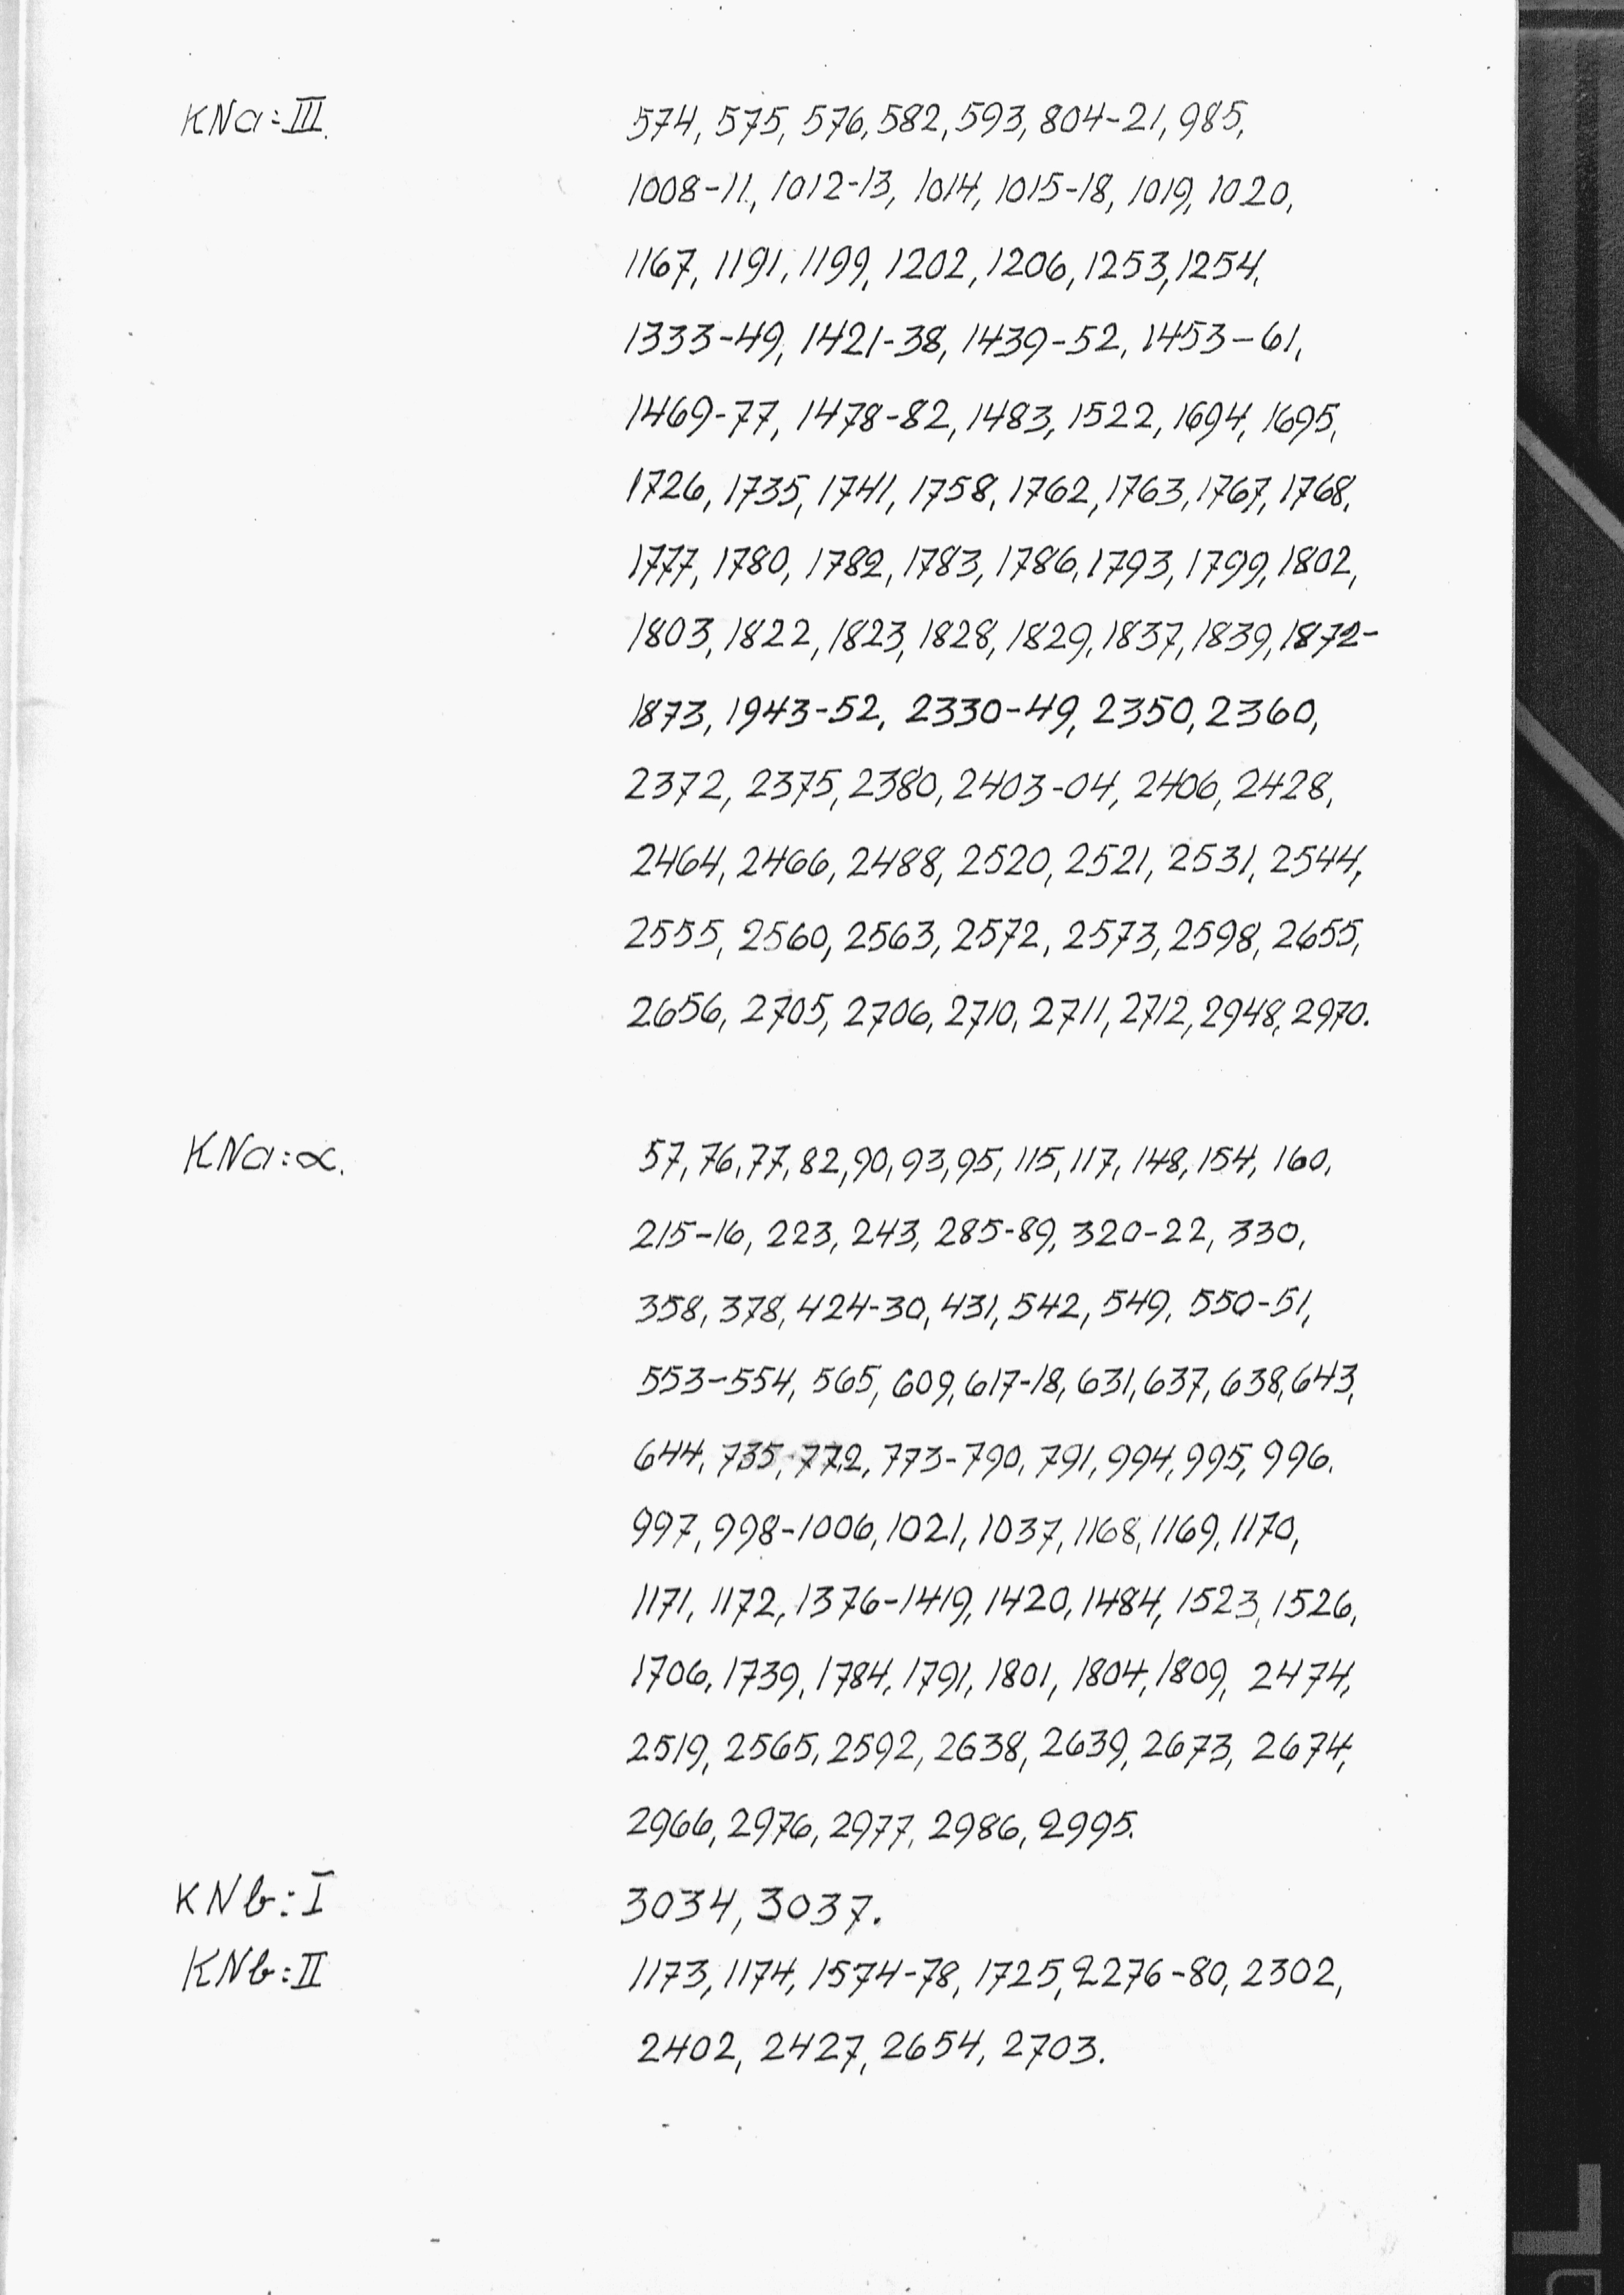 KNa:III. 574, 575, 576, 582, 593, 804-21, 985,
1008-11, 1012-13, 1014, 1015-18, 1019, 1020,
1167, 1191, 1199, 1202, 1206, 1253, 1254,
1333-49, 1421-38, 1439-52, 1453-61,
1469-77, 1478-82, 1483, 1522, 1694, 1695,
1726, 1735, 1741, 1758, 1762, 1763, 1767, 1768,
1777, 1780, 1782, 1783, 1786, 1793, 1799, 1802,
1803, 1822, 1823, 1828, 1829, 1837, 1839, 1872-
1873, 1943-52, 2330-49, 2350, 2360,
2372, 2375, 2380, 2403-04, 2406, 2428,
2464, 2466, 2488, 2520, 2521, 2531, 2544,
2555, 2560, 2563, 2572, 2573, 2598, 2655,
2656, 2705, 2706, 2710, 2711, 2712, 2948, 2970.
KNa:∝. 57, 76, 77, 82, 90, 93, 95, 115, 117, 148, 154, 160,
215-16, 223, 243, 285-89, 320-22, 330,
358, 378, 424-30, 431, 542, 549, 550-51,
553-554, 565, 609, 617-18, 631, 637, 638, 643,
644, 735, 772, 773-790, 791, 994, 995, 996.
997, 998-1006, 1021, 1037, 1168, 1169, 1170,
1171, 1172, 1376-1419, 1420, 1484, 1523, 1526,
1706, 1739, 1784, 1791, 1801, 1804, 1809, 2474,
2519, 2565, 2592, 2638, 2639, 2673, 2674,
2966, 2976, 2977, 2986, 2995.
KNb:I 3034, 3037.
KNb:II 1173, 1174, 1574-78, 1725, 2276-80, 2302,
2402, 2427, 2654, 2703.